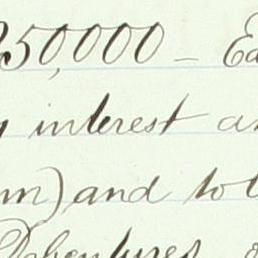 250,000 - Ea
y interest an
um) and to b
Debentures o